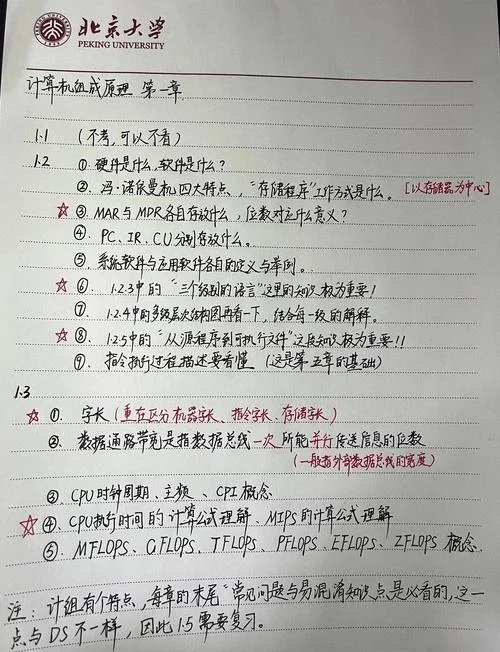 北京大学
PEKING UNIVERSITY
计算机组成原理 第一章
1.1 (不考,可以不看)
1.2 ①.硬件是什么,软件是什么?
②.冯·诺依曼机四大特点、"存储程序"工作方式是什么。[以存储器为中心]
☆ ③.MAR与MDR各自存放什么,位数对应什么意义?
④. PC、IR、CU分别存放什么。
⑤.系统软件与应用软件各自的定义与举例。
☆ ⑥. 1.2.3中的"三个级别的语言"这里的知识极为重要!
⑦. 1.2.4中的多级层次结构图再看一下,结合每一级的解释。
☆ ⑧. 1.2.5中的"从源程序到可执行文件"这段知识极为重要!!
⑨. 指令执行过程描述要看懂 (这是第五章的基础)
1.3
☆ ①. 字长(重在区分机器字长、指令字长、存储字长)
②. 数据通路带宽是指数据总线一次所能并行传送信息的位数
(一般指外部数据总线的宽度)
③ CPU时钟周期、主频、CPI概念
☆ ④. CPU执行时间的计算公式理解、MIPS的计算公式理解
⑤. MFLOPS、GFLOPS、TFLOPS、PFLOPS、EFLOPS、ZFLOPS 概念.
注:计组有个特点,每章的末尾"常见问题与易混淆知识点是必看的,这一
点与DS不一样,因此1.5需要复习。